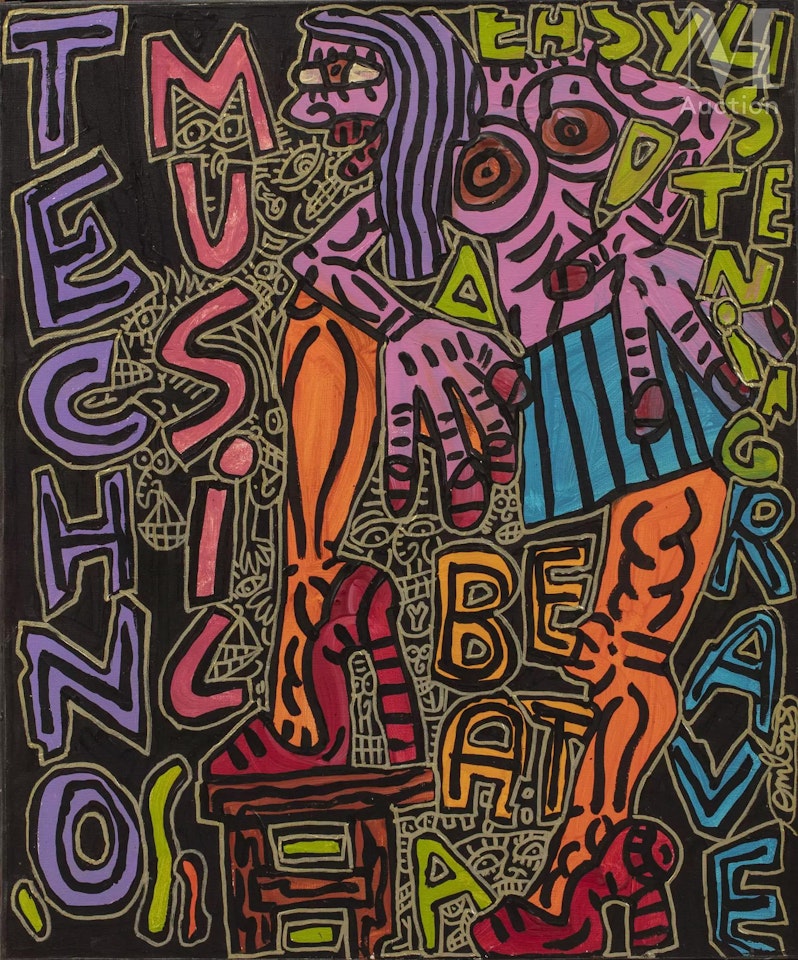 TECHNO
MUSiC
EASY
LISTENiNG
RAVE
BEAT
A
D
A
M
Auction